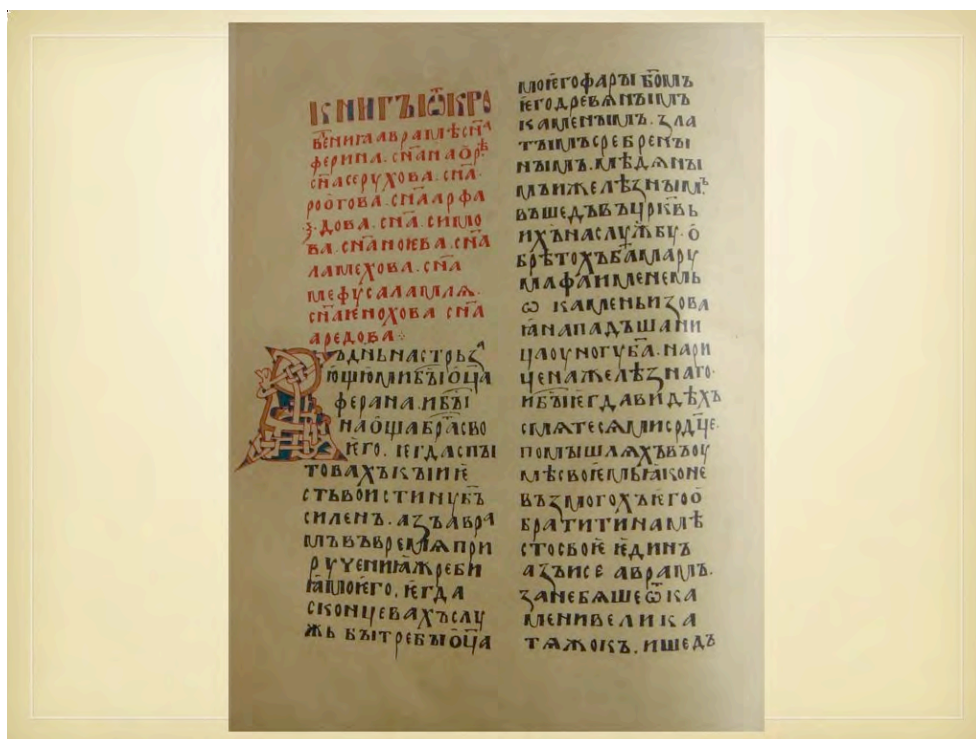 КНИГЪІѾКРО
ВЕНИꙗ АВРАМЛѢ СН҃А
ФЕРИНА. СН҃А НАОРѢ.
СН҃А СЕРУХОВА. СН҃А.
РООГОВА. СН҃А АРФА
ꙁ. ДОВА. СН҃А. СИМО
ВА. СН҃А НОѤВА. СН҃А
ЛАМЕХОВА. СН҃А
МЕФУСАЛАМЛѦ.
СН҃А ѤНОХОВА СН҃А
АРЕДОВА
ВЪДНЬНАСТРЬꙀ
ЮЩЮМИБЪІОЦ҃А
ФЕРАНА. ИБЪІ
НАОЦ҃АБРА҃СВО
ѤГО. ѤГДАСПЪІ
ТОВАХЪКЪІИѤ
СТЬВОИСТИНУБ҃Ъ
СИЛЕНЪ. АꙀЪАВРА
МЪВЪВРЕМѦПРИ
РУЧЕНИꙖЖРЕБИ
ꙖМОѤГО. ѤГДА
СКОНЦЕВАХЪСЛУ
ЖЬБЪІТРЕБЪІОЦ҃А
МОѤГОФАРЪІБ҃ОМЪ
ѤГОДРЕВѦНЪІМЪ
КАМЕНЪІМЪ. ꙀЛА
ТЪІМЪСРЕБРЕНЪІ
НЪІМЪ. МѢДѦНЪІ
МЪИЖЕЛѢꙀНЪІМЪ.
ВЪШЕДЪВЪЦР҃КВЬ
ИХЪНАСЛУЖБУ. О
БРѢТОХЪБ҃АМАРУ
МАФАИМЕНЕМЬ
Ѡ КАМЕНЬИꙀОВА
ꙖНАПАДЪШАНИ
ЦАОУНОГУБ҃А. НАРИ
ЦЕНАЖЕЛѢꙀНАГО.
ИБЪІѤГДАВИДѢХЪ
СМѦТЕСѦМИСРДЦ҃Е.
ПОМЪІШЛѦХЪВЪОУ
МѢСВОѤМЬꙖКОНЕ
ВЪꙀМОГОХЪѤГОО
БРАТИТИНАМѢ
СТОСВОѤ ѤДИНЪ
АꙀЪИСЕ АВРАМЪ.
ꙀАНЕБѦШЕѾКА
МЕНИВЕЛИКА
ТѦЖОКЪ. ИШЕДЪ